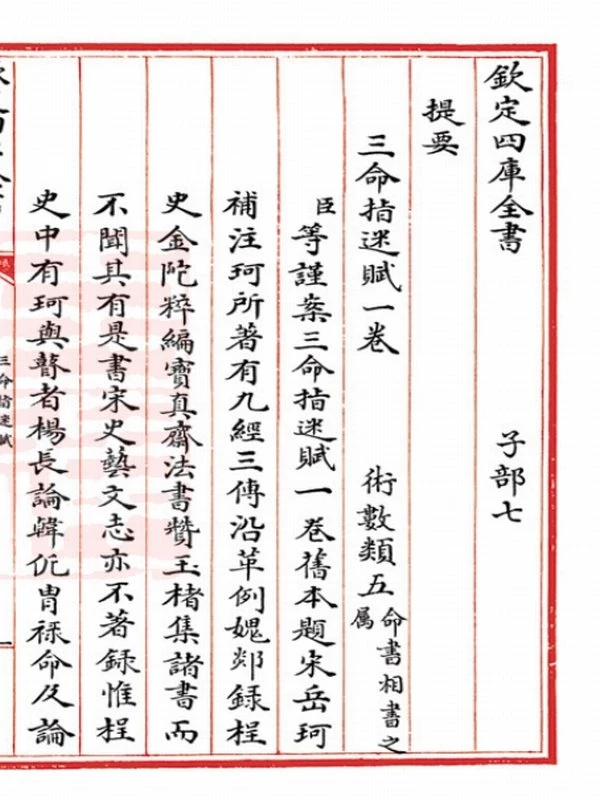 欽定四庫全書 子部七
提要
三命指迷賦一卷 術數類五命書相書之屬
臣等謹案三命指迷賦一卷舊本題宋岳珂
補注珂所著有九經三傳沿革例媿郯録桯
史金陀粹編寶真齋法書贊玉楮集諸書而
不聞其有是書宋史藝文志亦不著録惟桯
史中有珂與瞽者楊艮論韓侂胄祿命及論
三命指迷賦
一